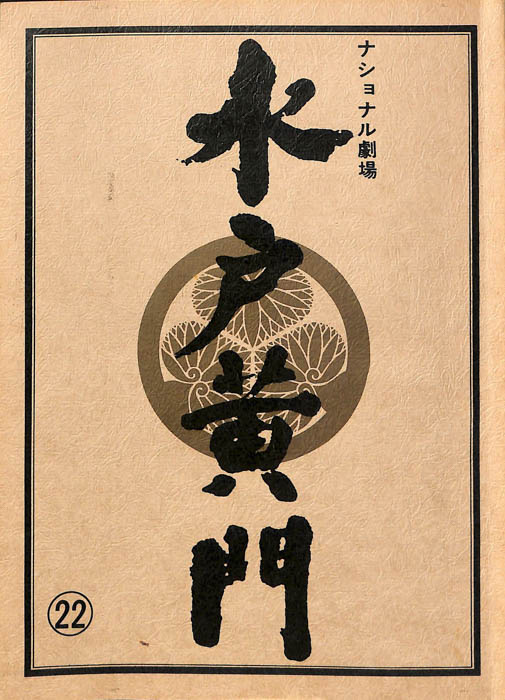 ナショナル劇場
水戸黄門
㉒